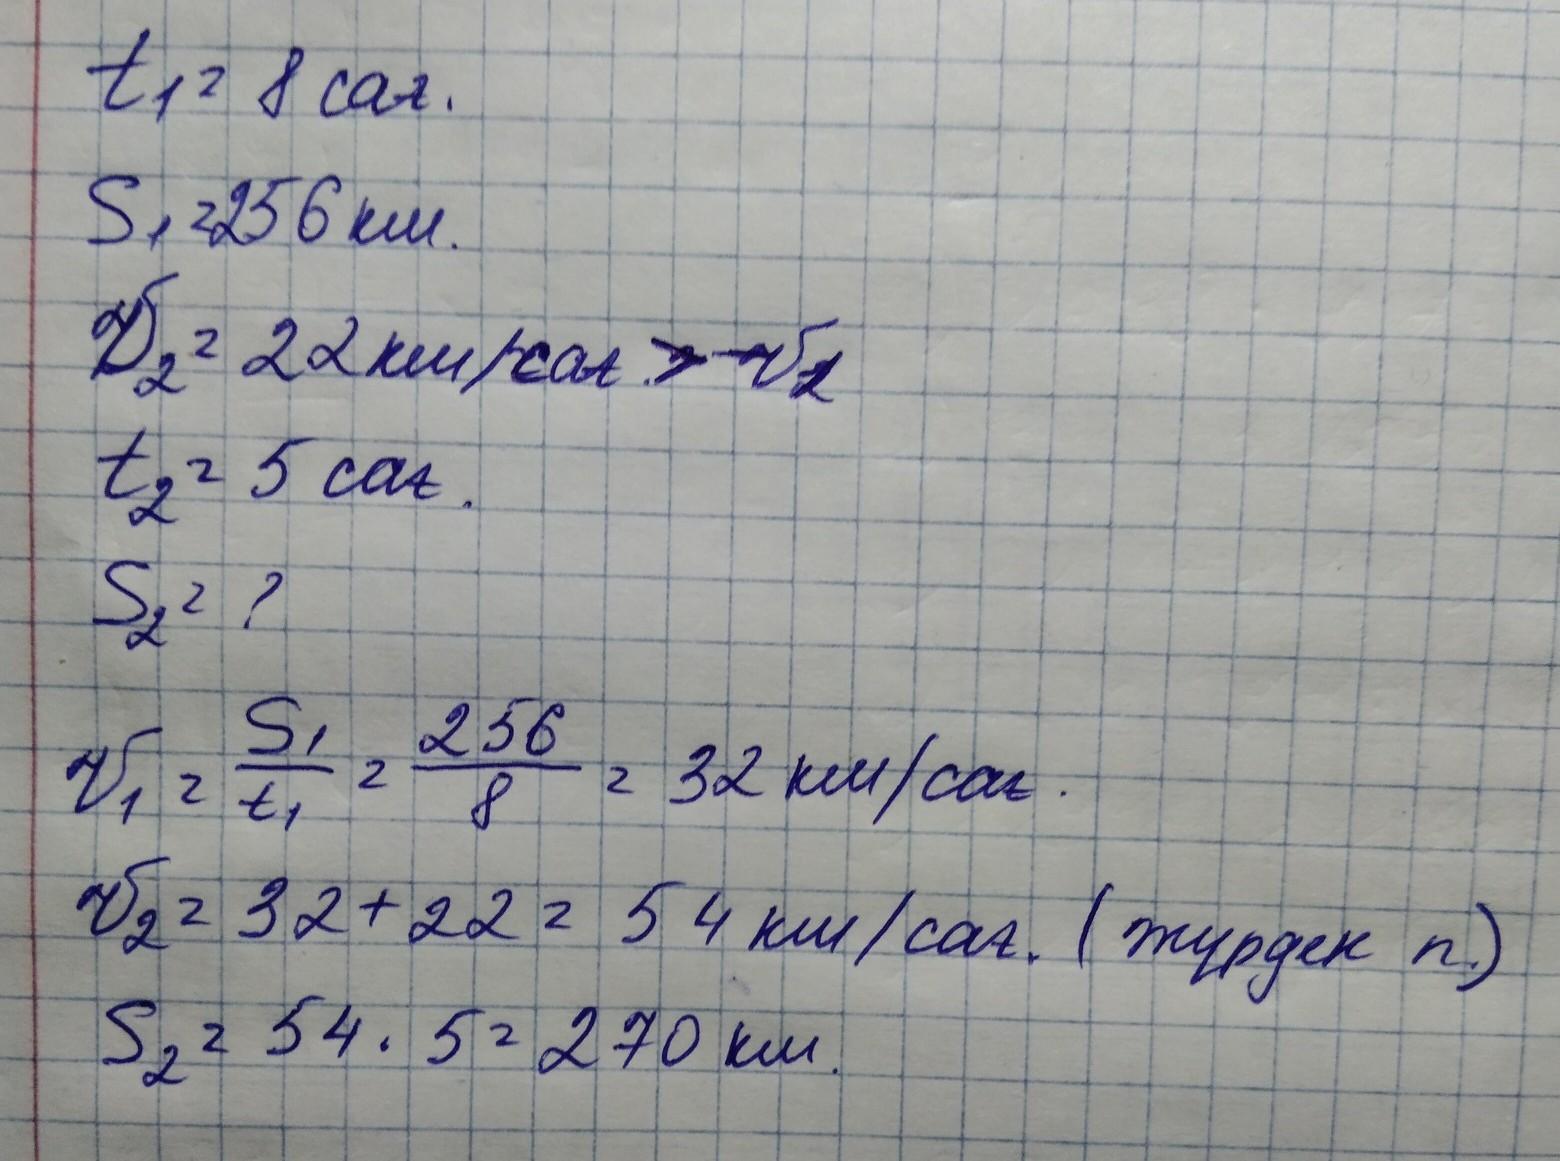 t₁ = 8 сағ.
S₁ = 256 км.
υ₂ = 22 км/сағ. > υ₁
t₂ = 5 сағ.
S₂ = ?
υ₁ = S₁/t₁ = 256/8 = 32 км/сағ.
υ₂ = 32 + 22 = 54 км/сағ. (журдек п.)
S₂ = 54 · 5 = 270 км.